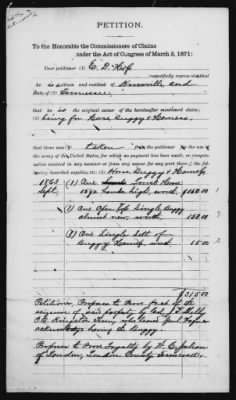 PETITION.
To the Honorable the Commissioners of Claims
under the Act of Congress of March 3, 1871:
Your petitioner (1) C. D.
respectfully represents that
he is citizen and resident of Knoxville and
State of (2) Tennessee
that he is the original owner of the hereinafter mentioned claim;
being for Horse Buggy & Harness.
that there was taken from your petitioner for the use of
the army of the United States, for which no payment has been made, or compen-
sation received in any manner or from any source for any part thereof, the fol-
lowing described supplies, (5) Horse, Buggy & Harness
1863 (1) One Horse
Sept. hands high, worth $150.00
(1) One Open Top Single Buggy
almost new worth 150 2
(1) One Single Sett of
Buggy Harness, and 15.00
$315.00
Petitioner Proposes to Prove fact of the
seizure of said property by
Kingston Tenn who heard Genl
acknowledge having the Buggy.
Proposes to Prove Loyalty by W.
of Loudon, Loudon County Tennessee.